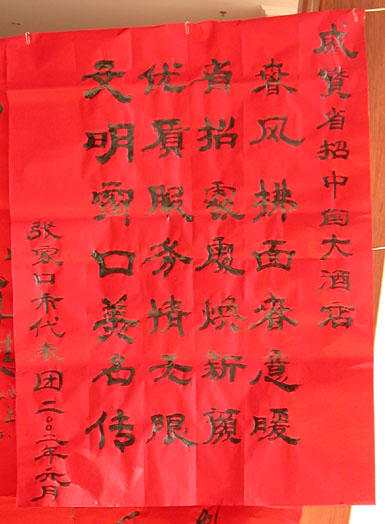 盛赞省招中国大酒店
春风拂面春意暖
省招处处焕新颜
优质服务情无限
文明窗口美名传
张家口市代表团二〇〇二年元月